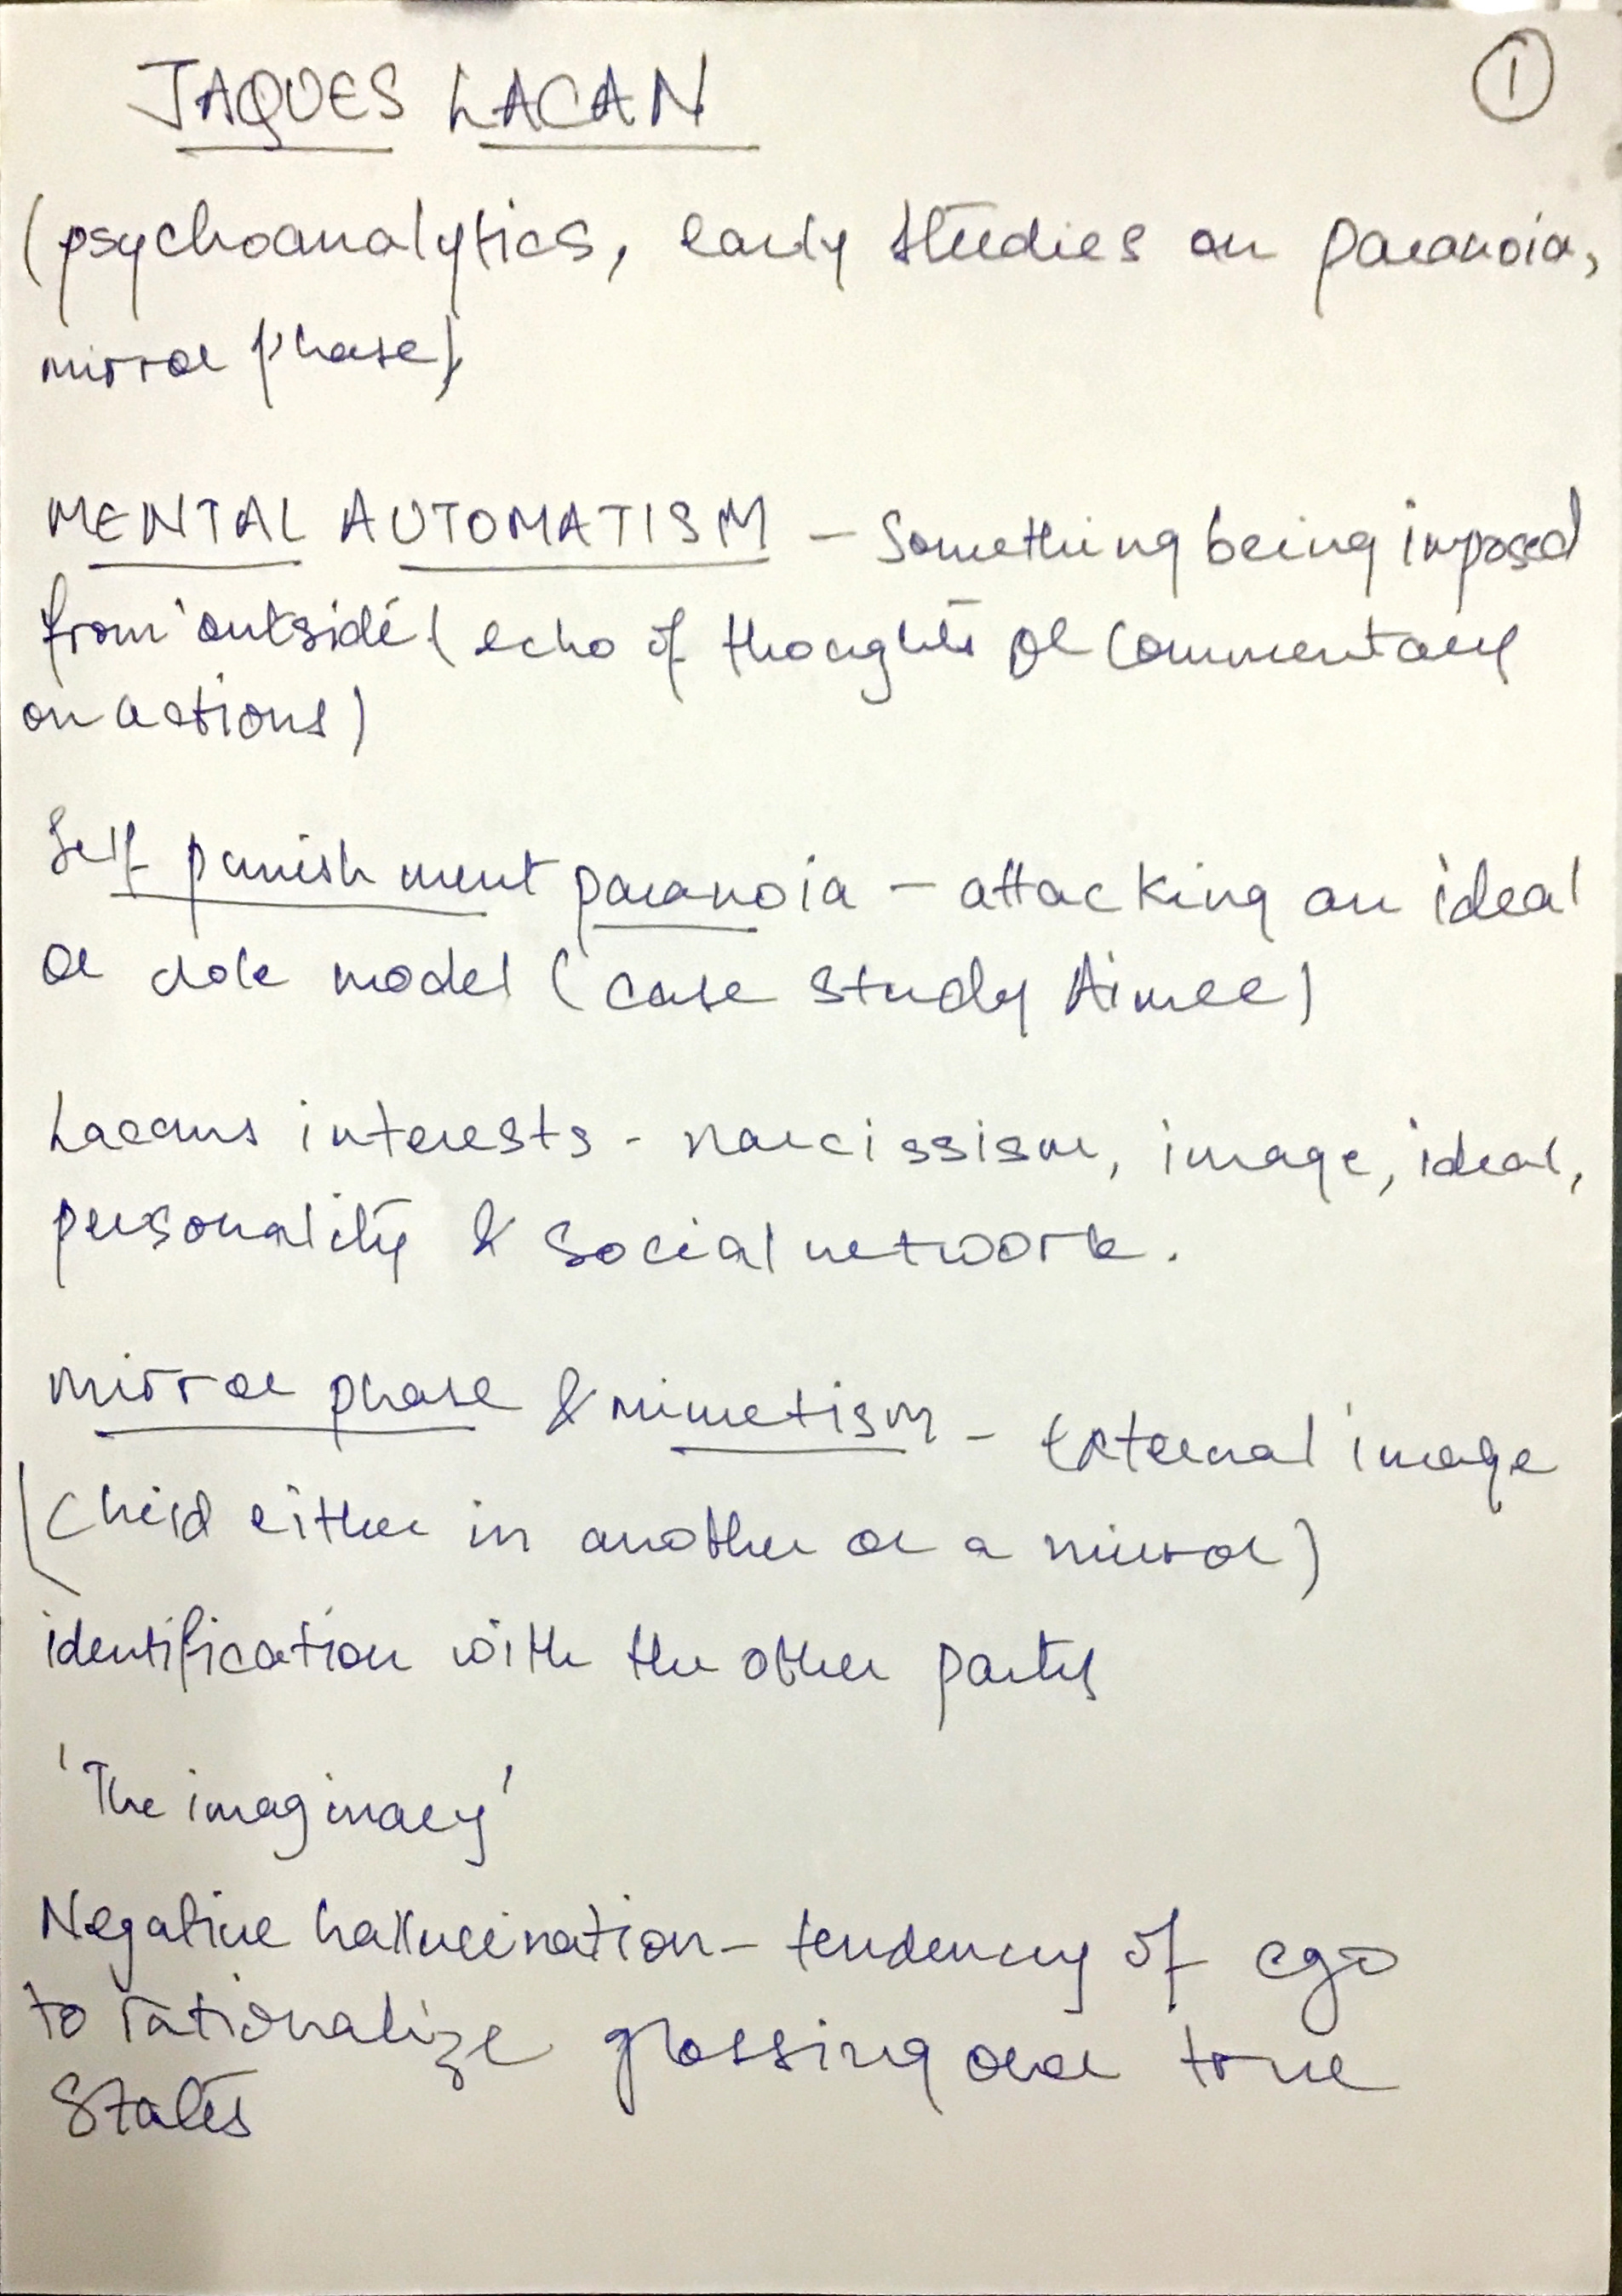 JAQUES LACAN
1
(psychoanalytics, early studies on paranoia,
mirror phase)
MENTAL AUTOMATISM – Something being imposed
from 'outside' (echo of thoughts or commentary
on actions)
Self punishment paranoia – attacking an ideal
or role model (case study Aimee)
Lacans interests - narcissism, image, ideal,
personality & social network.
mirror phase & mimetism – External image
(Child either in another or a mirror)
identification with the other party
'The imaginary'
Negative hallucination – tendency of ego
to rationalize glossing over true
States